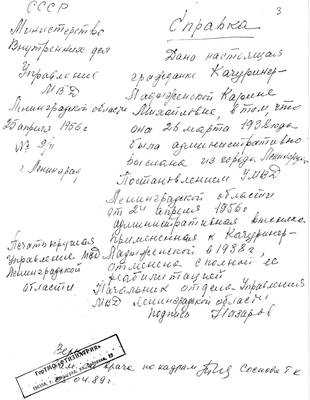 СССР
Министерство
Внутренних дел
Управление
МВД
Ленинградской области
25 апреля 1956 г
№ 9/п
г Ленинград
3
Справка
Дана настоящая
гражданке Качуринер-
Карине
Михайловне, в том, что
она 26 марта 1938 года
была административно
выслана из города Ленинграда
Постановлением УМВД
Ленинградской области
от 24 апреля 1956 г
административная высылка
примененная к Качуринер-
в 1938 г,
отменена с полной ее
реабилитацией
Печать круглая
Управление МВД
Ленинградской
области
Начальник отдела Управления
МВД Ленинградской области
подпись Назаров
Верно:
врача по кадрам
04.89 г.